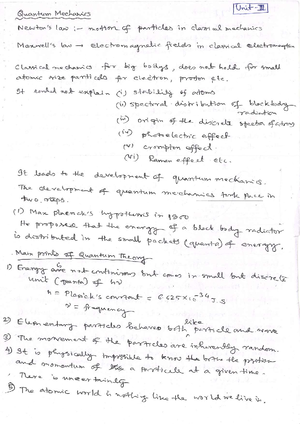 Unit-III
Quantum Mechanics
Newton's law :- motion of particles in classical mechanics
Maxwell's law → electromagnetic fields in classical electromagnetism
Classical mechanics for big bodys, does not hold for small
atomic size particles for electron, proton etc.
It could not explain (i) stability of atoms
(ii) spectral distribution of blackbody
radiation
(iii) origin of the discrete spectra of atoms
(iv) photoelectric effect
(v) crompton effect
(vi) Raman effect etc.
It leads to the development of quantum mechanics.
The development of quantum mechanics took place in
two steps.
(1) Max planck's hypothesis in 1900
He proposed that the energy of a black body radiator
is distributed in the small pockets (quanta) of energy.
Main points of Quantum Theory
1) Energy are not continuous but comes in small but discrete
unit (quanta) of hν
h = Planck's constant = 6.625×10⁻³⁴ J.s
ν = frequency
2) Elementary particles behaves both like particle and wave
3) The movement of the particles are inherently random.
4) It is physically impossible to know the both the position
and momentum of a particle at a given time.
There is uncertainly
5) The atomic world is nothing like the world we live in.